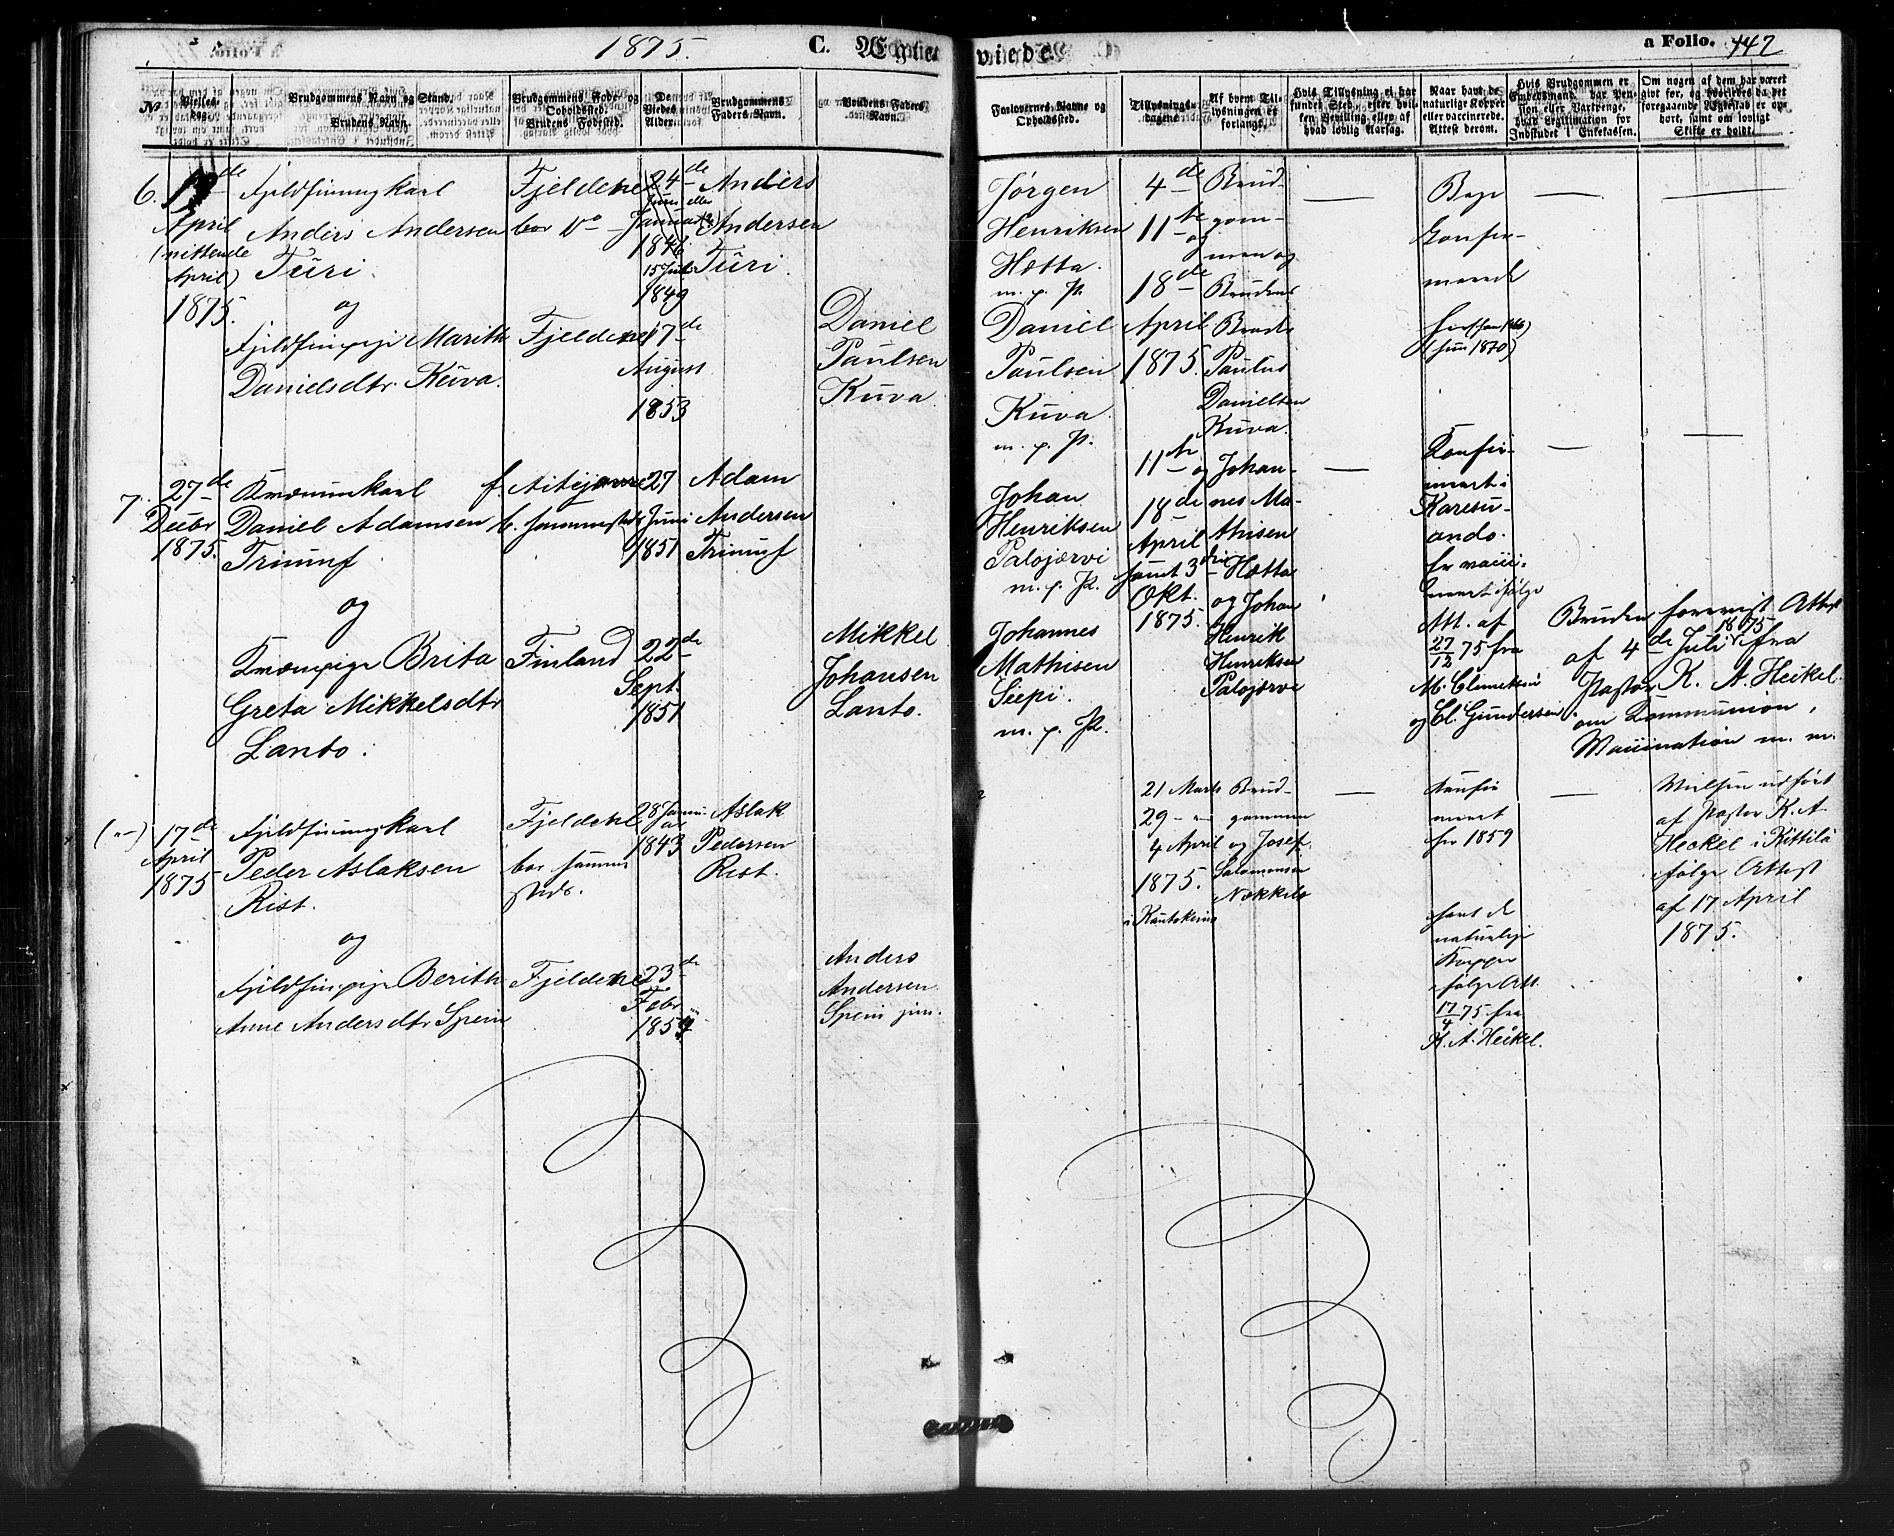 1875.
C. Ægte
viede.
a Folio. 147
No
Vielses-
dag.
Brudgommens Navn og Stand.
Brudens Navn.
Brudgommens Føde- og
Opholdssted.
Brudens Fødested.
De
Viedes
Alder.
Brudgommens
Faders Navn.
Brudens Faders
Navn.
Forlovernes Navne og
Opholdssted.
Tillysnings-
dagene.
Af hvem Til-
lysningen er
forlangt.
Hvis Tillysning ei har
fundet Sted, efter hvil-
ken Bevilling eller af
hvad lovlig Aarsag.
Naar havt de
naturlige Kopper
eller vaccinerede.
Attest derom.
Hvis Brudgommen er
Embedsmand, har Pen-
sion eller Vartpenge,
hvad Legitimation for
Indskudet i Enkekassen.
Om nogen af dem har været
gift før, og hvorledes da det
foregaaende Ægteskab er op-
hørt, samt om lovligt
Skifte er holdt.
6.
April
(nittende
April)
1875.
Fjeldfinnungkarl
Anders Andersen
Turi.
og
Fjeldfinpige Marith
Danielsdtr. Kuva.
Fjeldene
bor Do
Fjeldene
24de
Juni eller
Januar
1846
15 Juli
1849
17de
August
1853
Anders
Andersen
Turi.
Daniel
Paulsen
Kuva.
Jørgen
Henriksen
Hætta.
m. p. P.
Daniel
Paulsen
Kuva.
m. p. P.
4de
11te
og
18de
April
1875.
Brud-
gom-
men og
Brudens
Broder
Paulus
Danielsen
Kuva.
Bege
Konfir-
merede
7.
27de
Decbr
1875.
Kvænunkarl
Daniel Adamsen
Triumf.
og
Kvænpige Brita
Greta Mikkelsdtr
Lanto.
f. Aitejavre
b. sammesteds
Finland
27
Juni
1851
22de
Sept.
1851
Adam
Andersen
Triumf
Mikkel
Johansen
Lanto.
Johan
Henriksen
Palojærvi
m. p. P.
Johannes
Mathisen
Siepi.
m. p. P.
11te
og
18de
April
samt 3die
Okt.
1875.
Johan-
nes Ma-
thisen
Hætta
og Johan
Henrik
Henriksen
Palojærvi
Konfir-
mert i
Karesu-
ando.
Er vacci-
neert ifølge
Att. af
27/12 75 fra
M. Clemetsen
og Cl. Gundersen.
Bruden forevist Attest
af 4de Juli 1875 fra
Pastor K. A. Heikel
om Kommunion,
Vaccination m. m.
(-"-)
17de
April
1875
Fjeldfinnungkarl
Peder Aslaksen
Rist.
og
Fjeldfinpige Berith
Anne Andersdtr Spein
Fjeldene
bor sammen-
steds.
Fjeldene
28 Janu-
ar
1843
23de
Febr
1854
Aslak
Pedersen
Rist.
Anders
Andersen
Spein jun.
21 Marts
29 - "
4 April
1875.
i Kautokeino
Brud-
gommen
og Josef
Salomonsen
Nækkelæ
Konfir
meret
før 1859
havt de
naturlige
Kopper
ifølge Att.
17/4 75 fra
K. A. Heikel.
Vielsen udført
af Pastor K. A.
Heikel i Kittilä
ifølge Attest
af 17 April
1875.